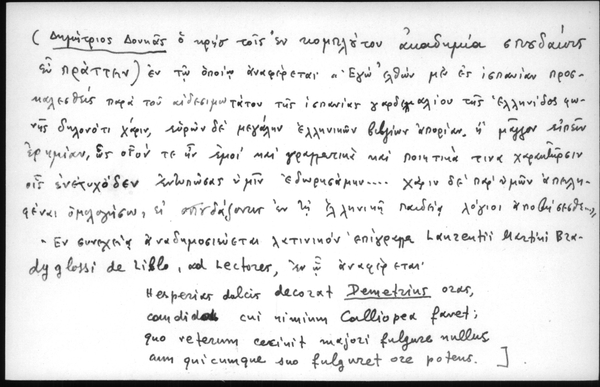 ( Δημήτριος Δουκᾶς ὁ κρὴς τοῖς ἐν κομπλούτου ἀκαδημίᾳ σπουδαίοις
εὖ πράττειν) ἐν τῷ ὁποίῳ ἀναφέρεται «Ἐγὼ ἐλθὼν μὲν ἐς ἰσπανίαν προσ-
καλεσθεὶς παρὰ τοῦ αἰδεσιμωτάτου τῆς ἰσπανίας γαρδιναλίου τῆς ἑλληνίδος φω-
νῆς δηλονότι χάριν, εὑρὼν δὲ μεγάλην ἑλληνικῶν βιβλίων ἀπορίαν, ἢ μᾶλλον εἰπεῖν
ἐρημίαν, ὡς οἷόν τε ἦν ἐμοί καὶ γραμματικὰ καὶ ποιητικά τινα χαρακτῆρσιν
οἷς ἐνέτυχον ἐντυπώσας ὑμῖν ἐδωρησάμην.... χάριν δὲ παρ' ὑμῶν ἀπειλη-
φέναι ὁμολογήσω, εἰ σπουδάζοντες ἐν τῇ ἑλληνικῇ παιδείᾳ λόγιοι ἀποβήσεσθε...»
- Ἐν συνεχείᾳ ἀναδημοσιεύεται λατινικὸν ἐπίγραμμα Laurentii Martini Bra-
dyglossi de Lillo, ad Lectores, ἐν ᾧ ἀναφέρεται
Hesperias dulcis decorat Demetrius oras,
candida cui nimium Calliopea favet;
quo veterum cecinit majori fulgure nullus
cum quicumque suo fulguret ore potens. ]